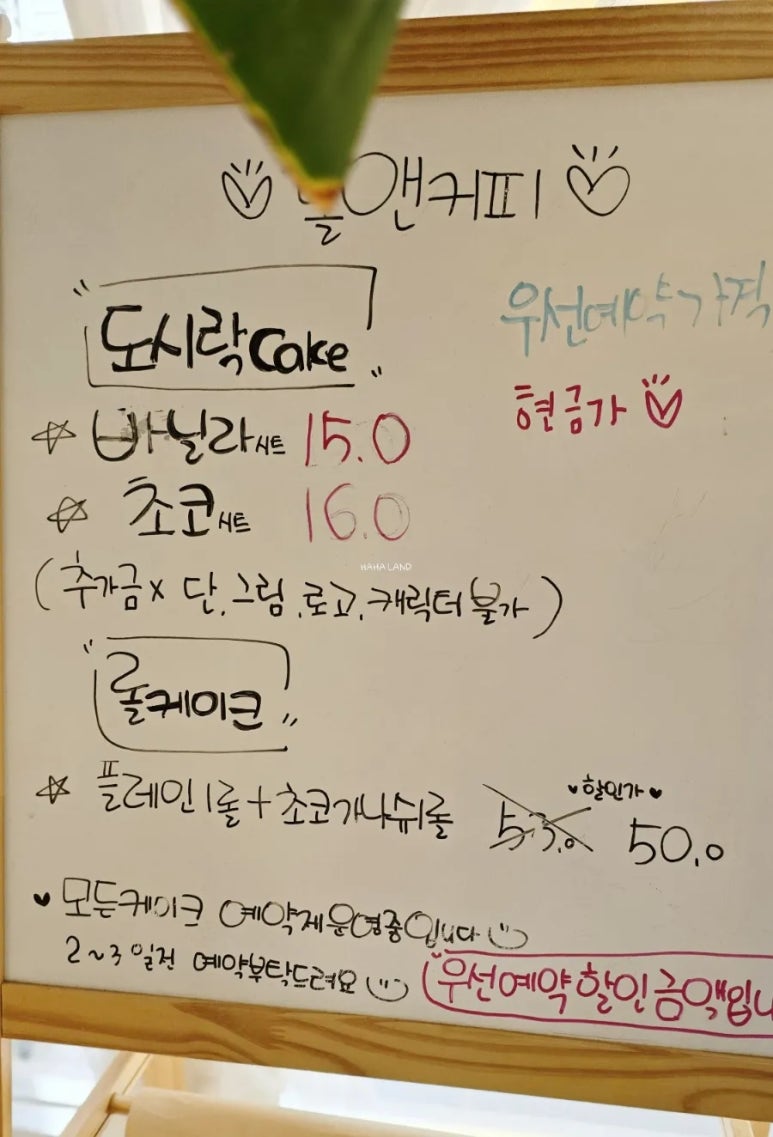 앤커피
우선예약가격
현금가
도시락Cake
바닐라시트 15.0
초코시트 16.0
HAHA LAND
(추가금x 단, 그림, 로고, 캐릭터 불가)
롤케이크
플레인1롤+초코가나슈1롤 53.0 할인가 50.0
모든케이크 예약제운영중입니다
2~3일전 예약부탁드려요
우선예약할인금액입니